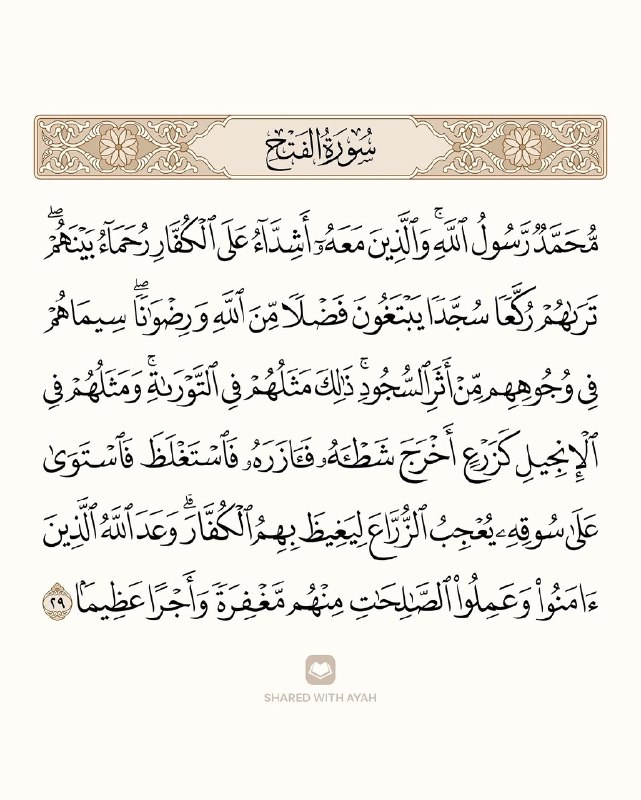 سُورَةُ الفَتۡحِ
مُّحَمَّدٞ رَّسُولُ ٱللَّهِۚ وَٱلَّذِينَ مَعَهُۥٓ أَشِدَّآءُ عَلَى ٱلۡكُفَّارِ رُحَمَآءُ بَيۡنَهُمۡۖ
تَرَىٰهُمۡ رُكَّعٗا سُجَّدٗا يَبۡتَغُونَ فَضۡلٗا مِّنَ ٱللَّهِ وَرِضۡوَٰنٗاۖ سِيمَاهُمۡ
فِي وُجُوهِهِم مِّنۡ أَثَرِ ٱلسُّجُودِۚ ذَٰلِكَ مَثَلُهُمۡ فِي ٱلتَّوۡرَىٰةِۚ وَمَثَلُهُمۡ فِي
ٱلۡإِنجِيلِ كَزَرۡعٍ أَخۡرَجَ شَطۡـَٔهُۥ فَـَٔازَرَهُۥ فَٱسۡتَغۡلَظَ فَٱسۡتَوَىٰ
عَلَىٰ سُوقِهِۦ يُعۡجِبُ ٱلزُّرَّاعَ لِيَغِيظَ بِهِمُ ٱلۡكُفَّارَۗ وَعَدَ ٱللَّهُ ٱلَّذِينَ
ءَامَنُواْ وَعَمِلُواْ ٱلصَّٰلِحَٰتِ مِنۡهُم مَّغۡفِرَةٗ وَأَجۡرًا عَظِيمَۢا ٢٩
SHARED WITH AYAH